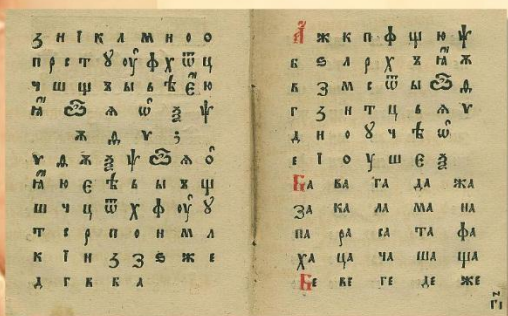 З Н І К Л М Н О О
П Р С Т Ꙋ ОУ Ф Х Ѿ Ц
Ч Ш Щ Ъ Ы Ь Ѣ Ю
Ѧ Ѱ
Ѫ Ѵ
Ѵ Ѱ Ѧ
Ю Є Ѣ Ь Ы Ъ Щ
Ш Ч Ц Ѿ Х Ф ОУ Ꙋ
Т С Р П О Н М Л
К І Н З Ꙁ Ѕ Ж Е
Д Г В Б А
Ж К П Ф Щ Ю Ѱ
Б Ѕ Л Р Х Ъ Ѫ
В З М С Ѿ Ы
Г З Н Т Ц Ь Ѧ Ѵ
Д Н О Ꙋ Ч Ѣ Ѡ
Е І О У Ш Є Ѯ
БА ВА ГА ДА ЖА
ЗА КА ЛА МА НА
ПА РА СА ТА ФА
ХА ЦА ЧА ША ЩА
БЕ ВЕ ГЕ ДЕ ЖЕ
ГІ